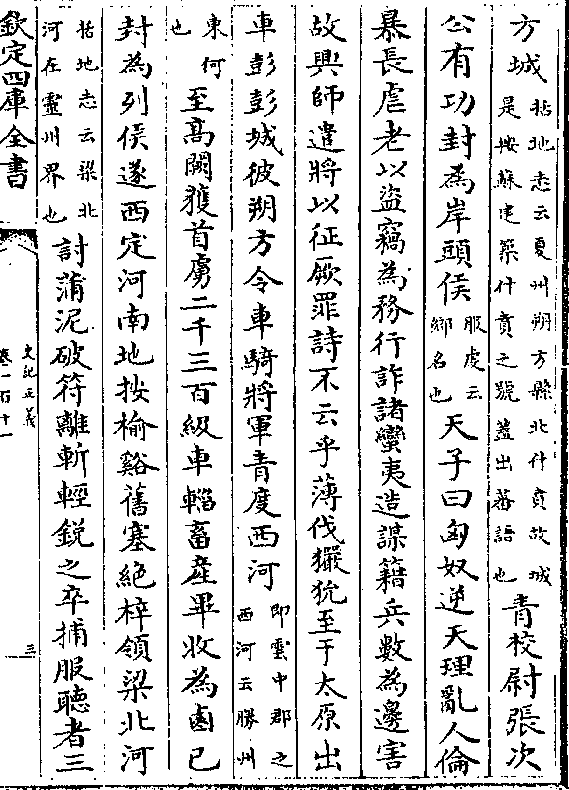 方城括地志云夏州朔方縣北什賁故城是按蘇建築什賁之號蓋出蕃語也青校尉張次
公有功封爲岸頭侯服虔云鄉名也天子曰匈奴逆天理亂人倫
暴長虐老以盜竊爲務行詐諸蠻夷造謀籍兵數爲邊害
故興師遣將以征厥罪詩不云乎薄伐玁狁至于太原出
車彭彭城彼朔方令車騎將軍青度西河即雲中郡之西河云勝州
東河也至高闕獲首虜二千三百級車輜畜産畢收爲鹵已
封爲列侯遂西定河南地按榆谿舊塞絶梓領梁北河
括地志云梁北河在靈州界也討蒲泥破符離斬輕鋭之卒捕服聽者三
欽定四庫全書
史記正義
卷一百十一
三